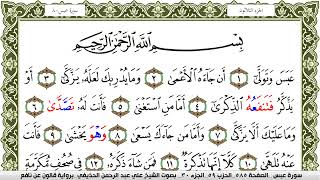 الجزء الثلاثون
سورة عبس ٨٠
بِسْمِ اللَّهِ الرَّحْمَٰنِ الرَّحِيمِ
عَبَسَ وَتَوَلَّىٰ ١ أَن جَاءَهُ الْأَعْمَىٰ ٢ وَمَا يُدْرِيكَ لَعَلَّهُ يَزَّكَّىٰ ٣ أَوْ
يَذَّكَّرُ فَتَنفَعُهُ الذِّكْرَىٰ ٤ أَمَّا مَنِ اسْتَغْنَىٰ ٥ فَأَنتَ لَهُ تَصَّدَّىٰ ٦
وَمَا عَلَيْكَ أَلَّا يَزَّكَّىٰ ٧ وَأَمَّا مَن جَاءَكَ يَسْعَىٰ ٨ وَهْوَ يَخْشَىٰ ٩ فَأَنتَ
عَنْهُ تَلَهَّىٰ ١٠ كَلَّا إِنَّهَا تَذْكِرَةٌ ١١ فَمَن شَاءَ ذَكَرَهُ ١٢ فِي صُحُفٍ مُّكَرَّمَةٍ
سورة عبس الصفحة ٥٨٥ الحزب ٥٩ الجزء ٣٠ بصوت الشيخ علي عبد الرحمن الحذيفي برواية قالون عن نافع